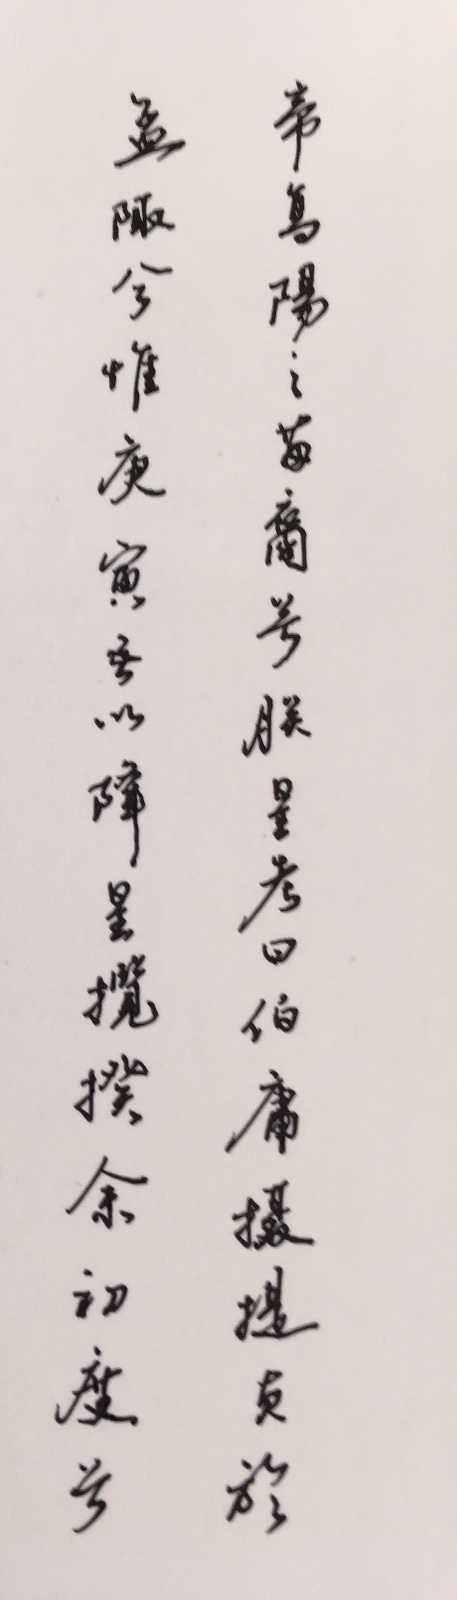 帝高陽之苗裔兮朕皇考曰伯庸攝提貞於
孟陬兮惟庚寅吾以降皇攬揆余初度兮